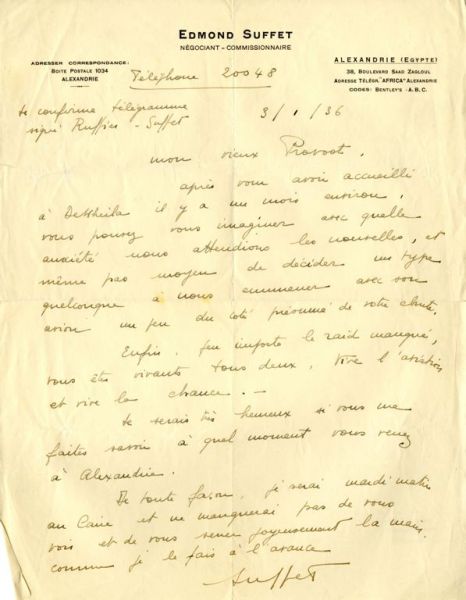 EDMOND SUFFET
NÉGOCIANT - COMMISSIONNAIRE
ADRESSER CORRESPONDANCE:
BOITE POSTALE 1034
ALEXANDRIE
ALEXANDRIE (EGYPTE)
38, BOULEVARD SAAD ZAGLOUL
ADRESSE TÉLÉGR. "AFRICA" ALEXANDRIE
CODES: BENTLEY'S - A.B.C.
Téléphone 20048
Je confirme télégramme
signé Ruffier - Suffet
3/1/36
mon vieux Provost,
après vous avoir accueilli
à Dekheila il y a un mois environ,
vous pouvez vous imaginer avec quelle
anxiété nous attendions les nouvelles, et
même pas moyen de décider un type
quelconque à nous emmener avec son
avion un peu du côté présumé de votre chute.
Enfin, peu importe le raid manqué,
vous êtes vivants tous deux, vive l'aviation
et vive la chance. -
Je serais très heureux si vous me
faites savoir à quel moment vous venez
à Alexandrie.
De toute façon, je serai mardi matin
au Caire et ne manquerai pas de vous
voir et de vous serrer joyeusement la main,
comme je le fais à l'avance
Suffet